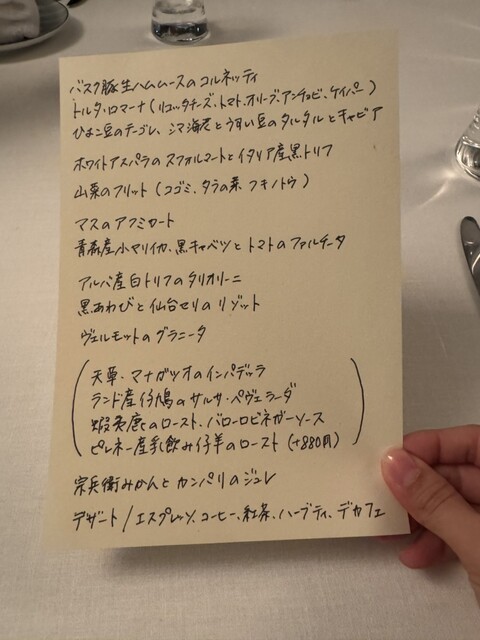 バスク豚生ハムムースのコルネッティ
トルタ・ロマーナ(リコッタチーズ、トマト、オリーブ、アンチョビ、ケイパー)
ひよこ豆のテゴレ、シマ海老とうすい豆のタルタルとキャビア
ホワイトアスパラのスフォルマートとイタリア産黒トリフ
山菜のフリット(コゴミ、タラの芽、フキノトウ)
マスのアフミカート
青森産小ヤリイカ、黒キャベツとトマトのファルチータ
アルバ産白トリフのタリオリーニ
黒あわびと仙台セリのリゾット
ヴェルモットのグラニータ
天草・マナガツオのインパデッラ
ランド産仔鳩のサルサ・ペヴェラーダ
蝦夷鹿のロースト、バローロビネガーソース
ピレネー産乳飲み仔羊のロースト(+880円)
宗兵衛みかんとカンパリのジュレ
デザート/エスプレッソ、コーヒー、紅茶、ハーブティ、デカフェ